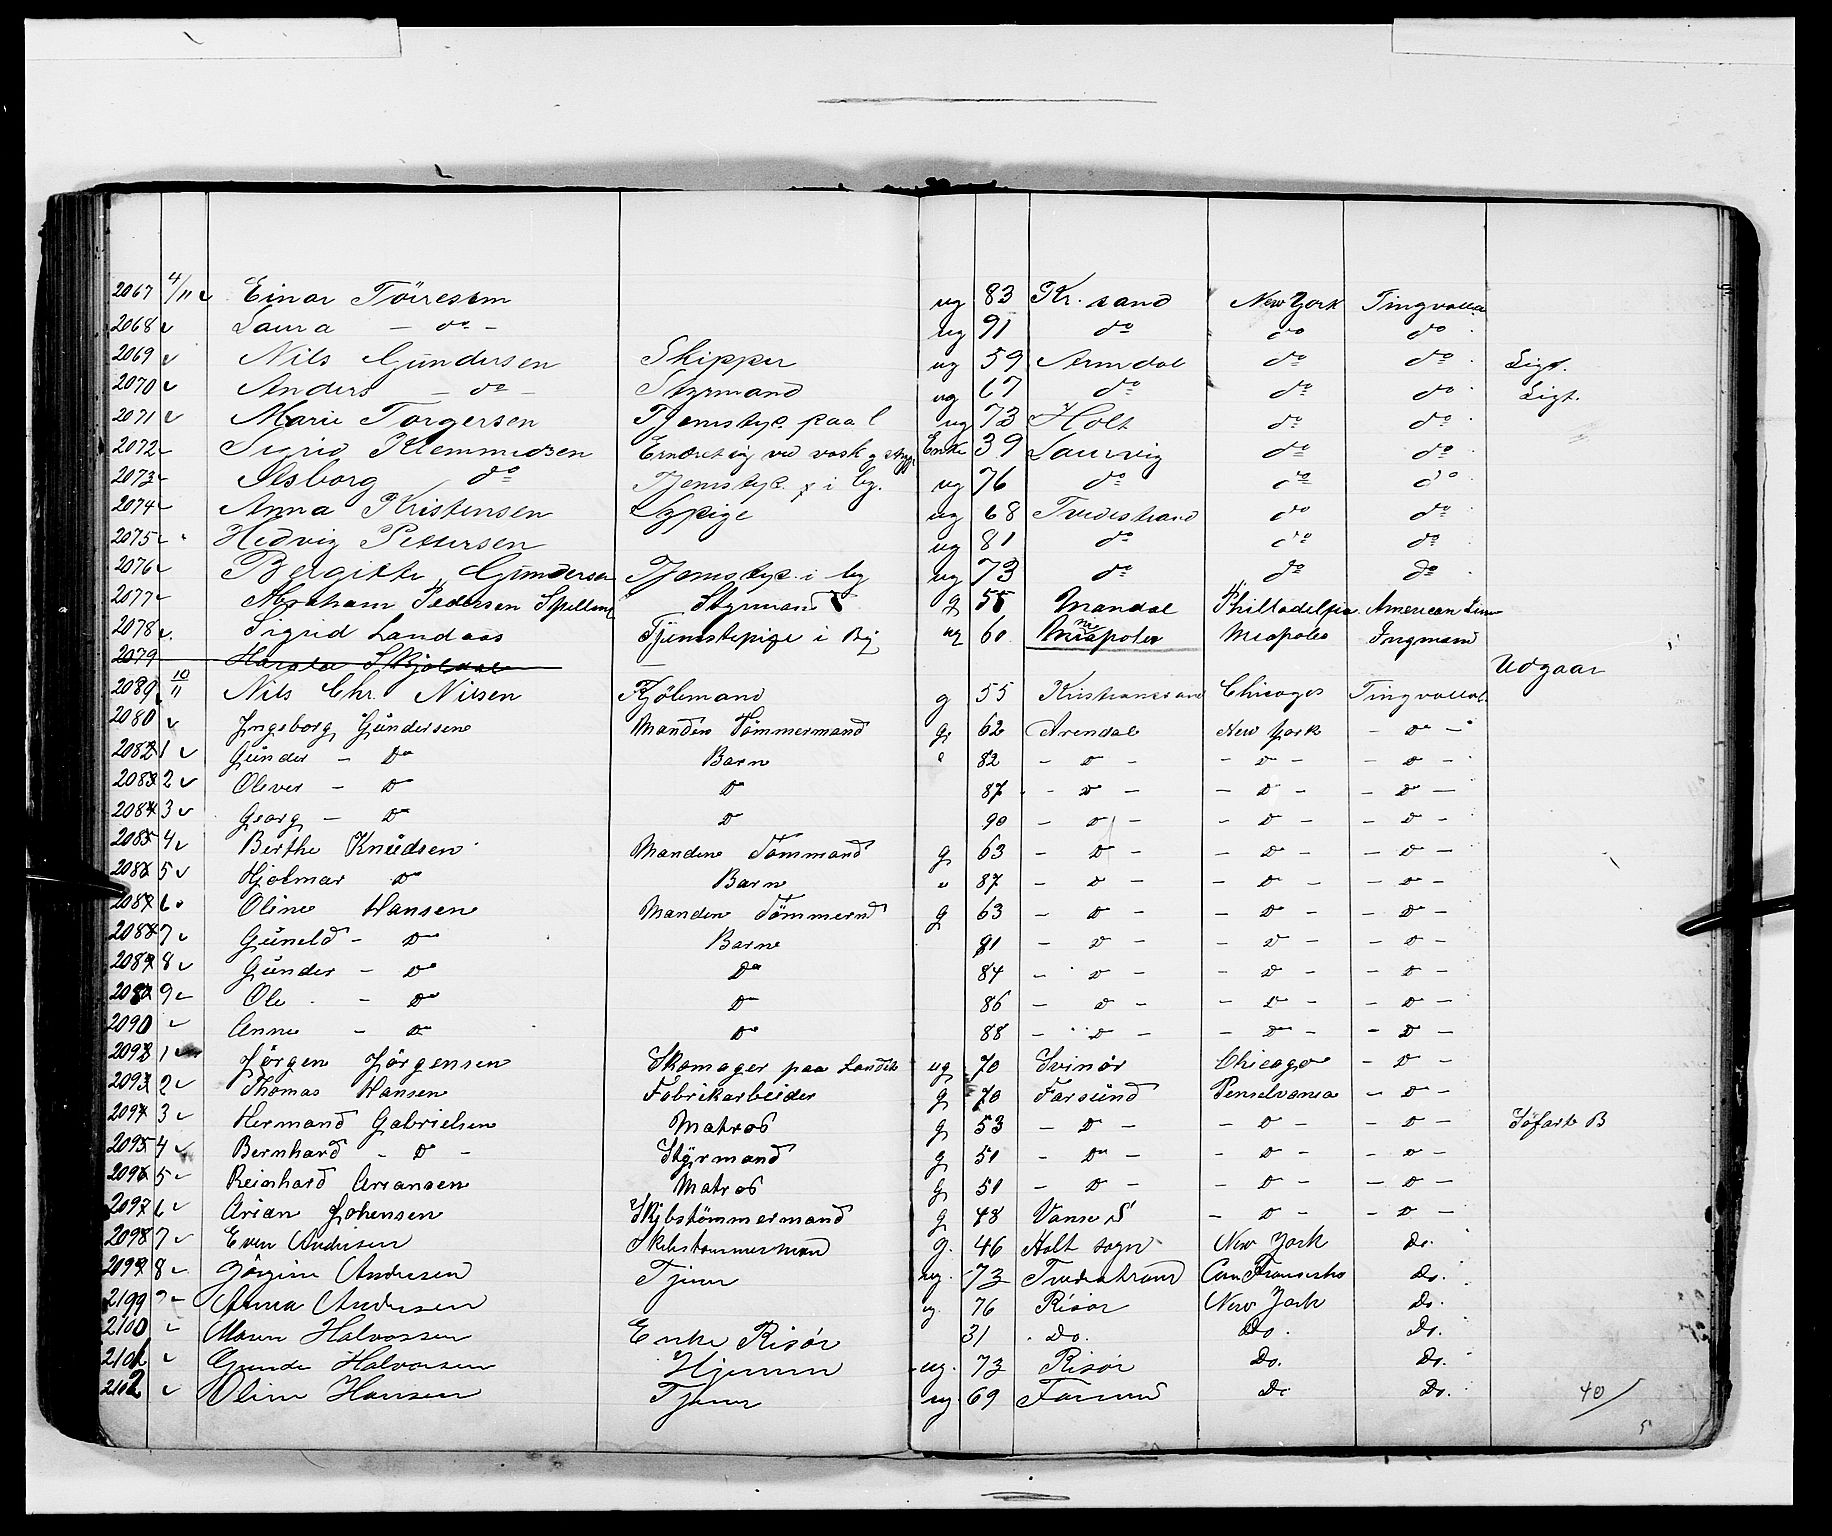 2067 4/11 Einar Töiresen ug 83 Kr. sand New York Tingvalla
2068 Laura - do - ug 91 do do do
2069 Nils Gundersen Skipper ug 59 Arendal do do Sigt.
2070 Anders - do - Styrmand ug 67 do do do Sigt.
2071 Marie Torgersen Tjenstep. paa l ug 73 Holt do do
2072 Sigrid Klemmidsen Ernæret sig ved vask og Enke 39 Laurvig do do
2073 Aasborg do Tjenstep. i by. ug 76 do do do
2074 Anna Kristensen Sypige ug 68 Tvedestrand do do
2075 Hedvig Pettersen ug 81 do do do
2076 Bergitte Gundersen Tjenstep. i by ug 73 do do do
2077 Abraham Pedersen Styrmand g 55 Mandal Philladelpia American Line
2078 Sigrid Landaas Tjenstepige i By ug 60 Meapoles Ingmand
2079 Udgaar
2080 10/11 Nils Chr. Nilsen Kjöbmand g 55 Kristianssand Chicago Tingvalla
2080 Ingeborg Gundersen Manden Tömmermand g 62 Arendal New York - Do -
2081 Gunder - Do Barn 82 - Do - - Do - - Do -
2082 Oliver - Do Do 87 - Do - - Do - - Do -
2083 Georg - Do Do 90 - Do - - Do - - Do -
2084 Berthe Knudsen Manden Tömmand g 63 - Do - - Do - - Do -
2085 Hjalmar Do Barn 87 - Do - - Do - - Do -
2086 Oline Hansen Manden Tömmermd g 63 - Do - - Do - - Do -
2087 Guneld - Do Barn 81 - Do - - Do - - Do -
2088 Gunder - Do Do 84 - Do - - Do - - Do -
2089 Ole - Do Do 86 - Do - - Do - - Do -
2090 Anne - Do Do 88 - Do - - Do - - Do -
2091 Jörgen Jörgensen Skomager paa Landet ug 70 Svinör Chicago - Do -
2092 Thomas Hansen Fabrikarbeider g 70 Farsund Penselvania - Do -
2093 Hermand Gabrielsen Matros g 53 - Do - - Do - - Do - Söfarts B
2094 Bernhard - Do - Styrmand g 51 - Do - - Do - - Do -
2095 Reinhard Ariansen Matros g 51 - Do - - Do - - Do -
2096 Arian Johensen Skibstömmermand g 48 Vanse S - Do - - Do -
2097 Even Andersen Skibstommerman g. 46 Holt sogn New York Do.
2098 Jörgine Andresen Tjener ug. 73 Tvedestrand San Francisko Do.
2099 Anna Andersen ug. 76 Risör New York Do.
2100 Maren Halvorsen Enke Risör 31 Do. Do. Do.
2101 Gunda Halvorsen Hjemm ug. 73 Risör Do. Do.
2102 Oline Hansen Tjener ug. 69 Farsund Do Do.
40/
5